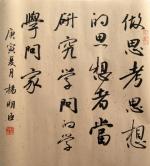 做思考思想
的思想者當
研究学问的学
學问家
庚寅夏月楊明臣